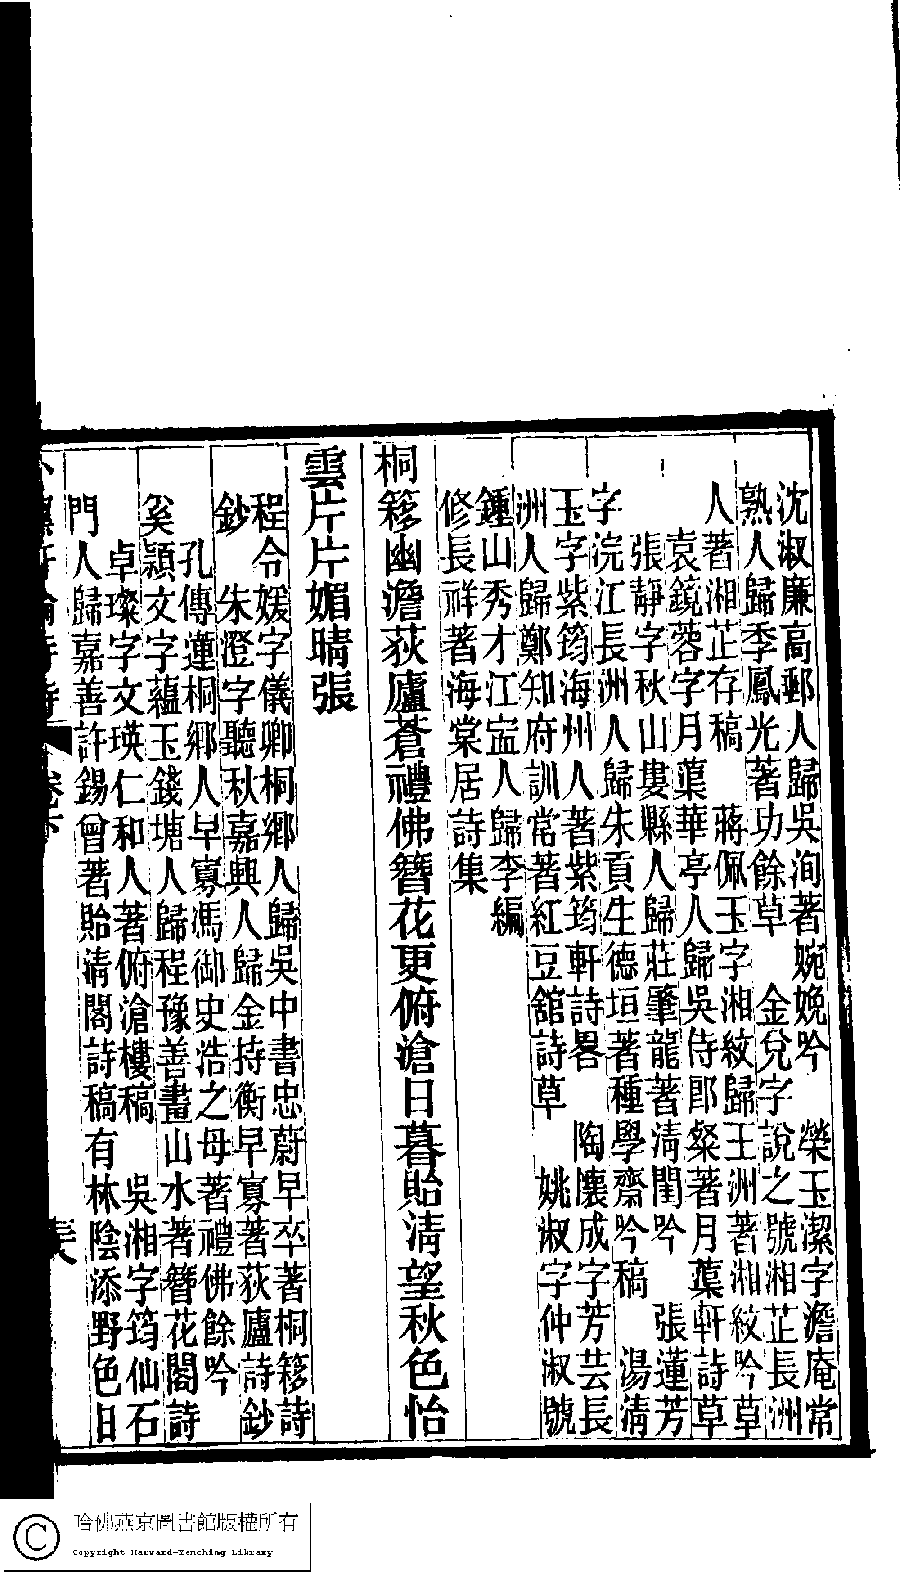 沈淑廉高郵人歸吳洵著婉娩吟　榮玉潔字澹庵常
熟人歸季鳳光著功餘草　金兌字說之號湘芷長洲
人著湘芷存稿　蔣佩玉字湘紋歸王洲著湘紋吟草
袁鏡蓉字月蕖華亭人歸吳侍郎粲著月蕖軒詩草
張靜字秋山婁縣人歸莊肇龍著淸閨吟　張蓮芳
字浣江長洲人歸朱貢生德垣著種學齋吟稿　湯淸
玉字紫筠海州人著紫筠軒詩畧　陶懷成字芳芸長
洲人歸鄭知府訓常著紅豆舘詩草　姚淑字仲淑號
鍾山秀才江寍人歸李編
修長祥著海棠居詩集
桐簃幽澹荻廬蒼禮佛簪花更俯滄日暮貽淸望秋色怡
雲片片媚晴張
程令媛字儀卿桐鄉人歸吳中書忠蔚早卒著桐簃詩
鈔　朱澄字聽秋嘉興人歸金持衡早寡著荻廬詩鈔
孔傳蓮桐鄉人早寡馮御史浩之母著禮佛餘吟
奚顈文字蘊玉錢塘人歸程豫善畫山水著簪花閣詩
卓璨字文瑛仁和人著俯滄樓稿　吳湘字筠仙石
門人歸嘉善許錫曾著貽淸閣詩稿有林陰添野色日
卷下
哈佛燕京圖書館版權所有
Copyright Harvard-Yenching Library